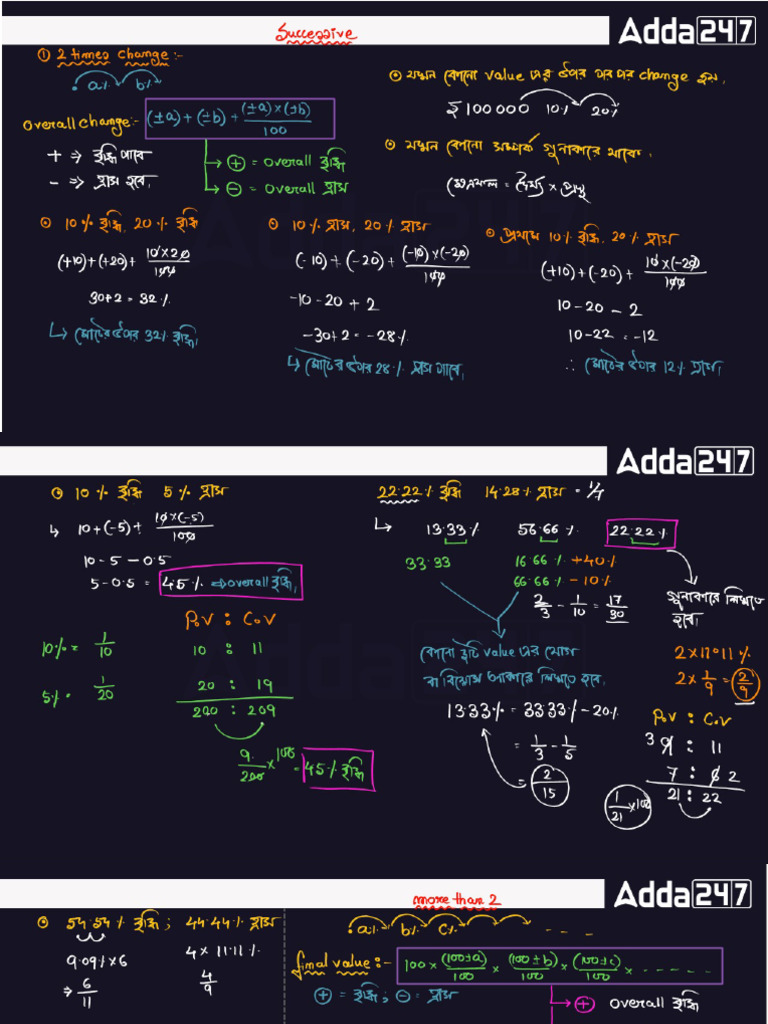 Successive
Adda247
① 2 times change:-
a% b%
overall change:- (±a)+(±b)+ (±a)×(±b)/100
+ ⇒ বৃদ্ধি পাবে
- ⇒ হ্রাস হবে।
⊕ = overall বৃদ্ধি
⊖ = overall হ্রাস
⊙ যখন কোনো value এর উপর পর পর change হয়।
₹100000 10% 20%
⊙ যখন কোনো সম্পর্ক গুনাকারে থাকে।
ক্ষেত্রফল = দৈর্ঘ্য × প্রস্থ
⊙ 10% বৃদ্ধি, 20% বৃদ্ধি
(+10)+(+20)+ 10×20/100
30+2 = 32%
↳ মোটের উপর 32% বৃদ্ধি।
⊙ 10% হ্রাস, 20% হ্রাস
(-10)+(-20)+ (-10)×(-20)/100
-10-20+2
-30+2 = -28%
↳ মোটের উপর 28% হ্রাস পাবে।
⊙ প্রথমে 10% বৃদ্ধি, 20% হ্রাস
(+10)+(-20)+ 10×(-20)/100
10-20-2
10-22 = -12
∴ মোটের উপর 12% হ্রাস।
Adda247
⊙ 10% বৃদ্ধি 5% হ্রাস
↳ 10+(-5)+ 10×(-5)/100
10-5-0.5
5-0.5 = 4.5% ⇒ overall বৃদ্ধি।
P.V : C.V
10% = 1/10 10 : 11
5% = 1/20 20 : 19
200 : 209
9/200 ×100 = 4.5% বৃদ্ধি
22.22% বৃদ্ধি 14.28% হ্রাস = 1/7
↳ 13.33% 56.66% 22.22%
33.33 16.66% +40%
66.66% -10%
2/3 - 1/10 = 17/30
কোনো দুটি value এর যোগ
বা বিয়োগ আকারে লিখতে হবে।
13.33% = 33.33% - 20%
= 1/3 - 1/5
= 2/15
গুনাকারে লিখতে
হবে।
2×11.11%
2×1/9 = 2/9
P.V : C.V
3 9 : 11
7 : 6 2
21 : 22
1/21 ×100
Adda247
more than 2
⊙ 54.54% বৃদ্ধি ; 44.44% হ্রাস
9.09%×6 4×11.11%
⇒ 6/11 4/9
a% b% c% - - - -
final value:- 100× (100±a)/100 × (100±b)/100 × (100±c)/100 × - - - - - -
⊕ = বৃদ্ধি ; ⊖ = হ্রাস
⊕ overall বৃদ্ধি